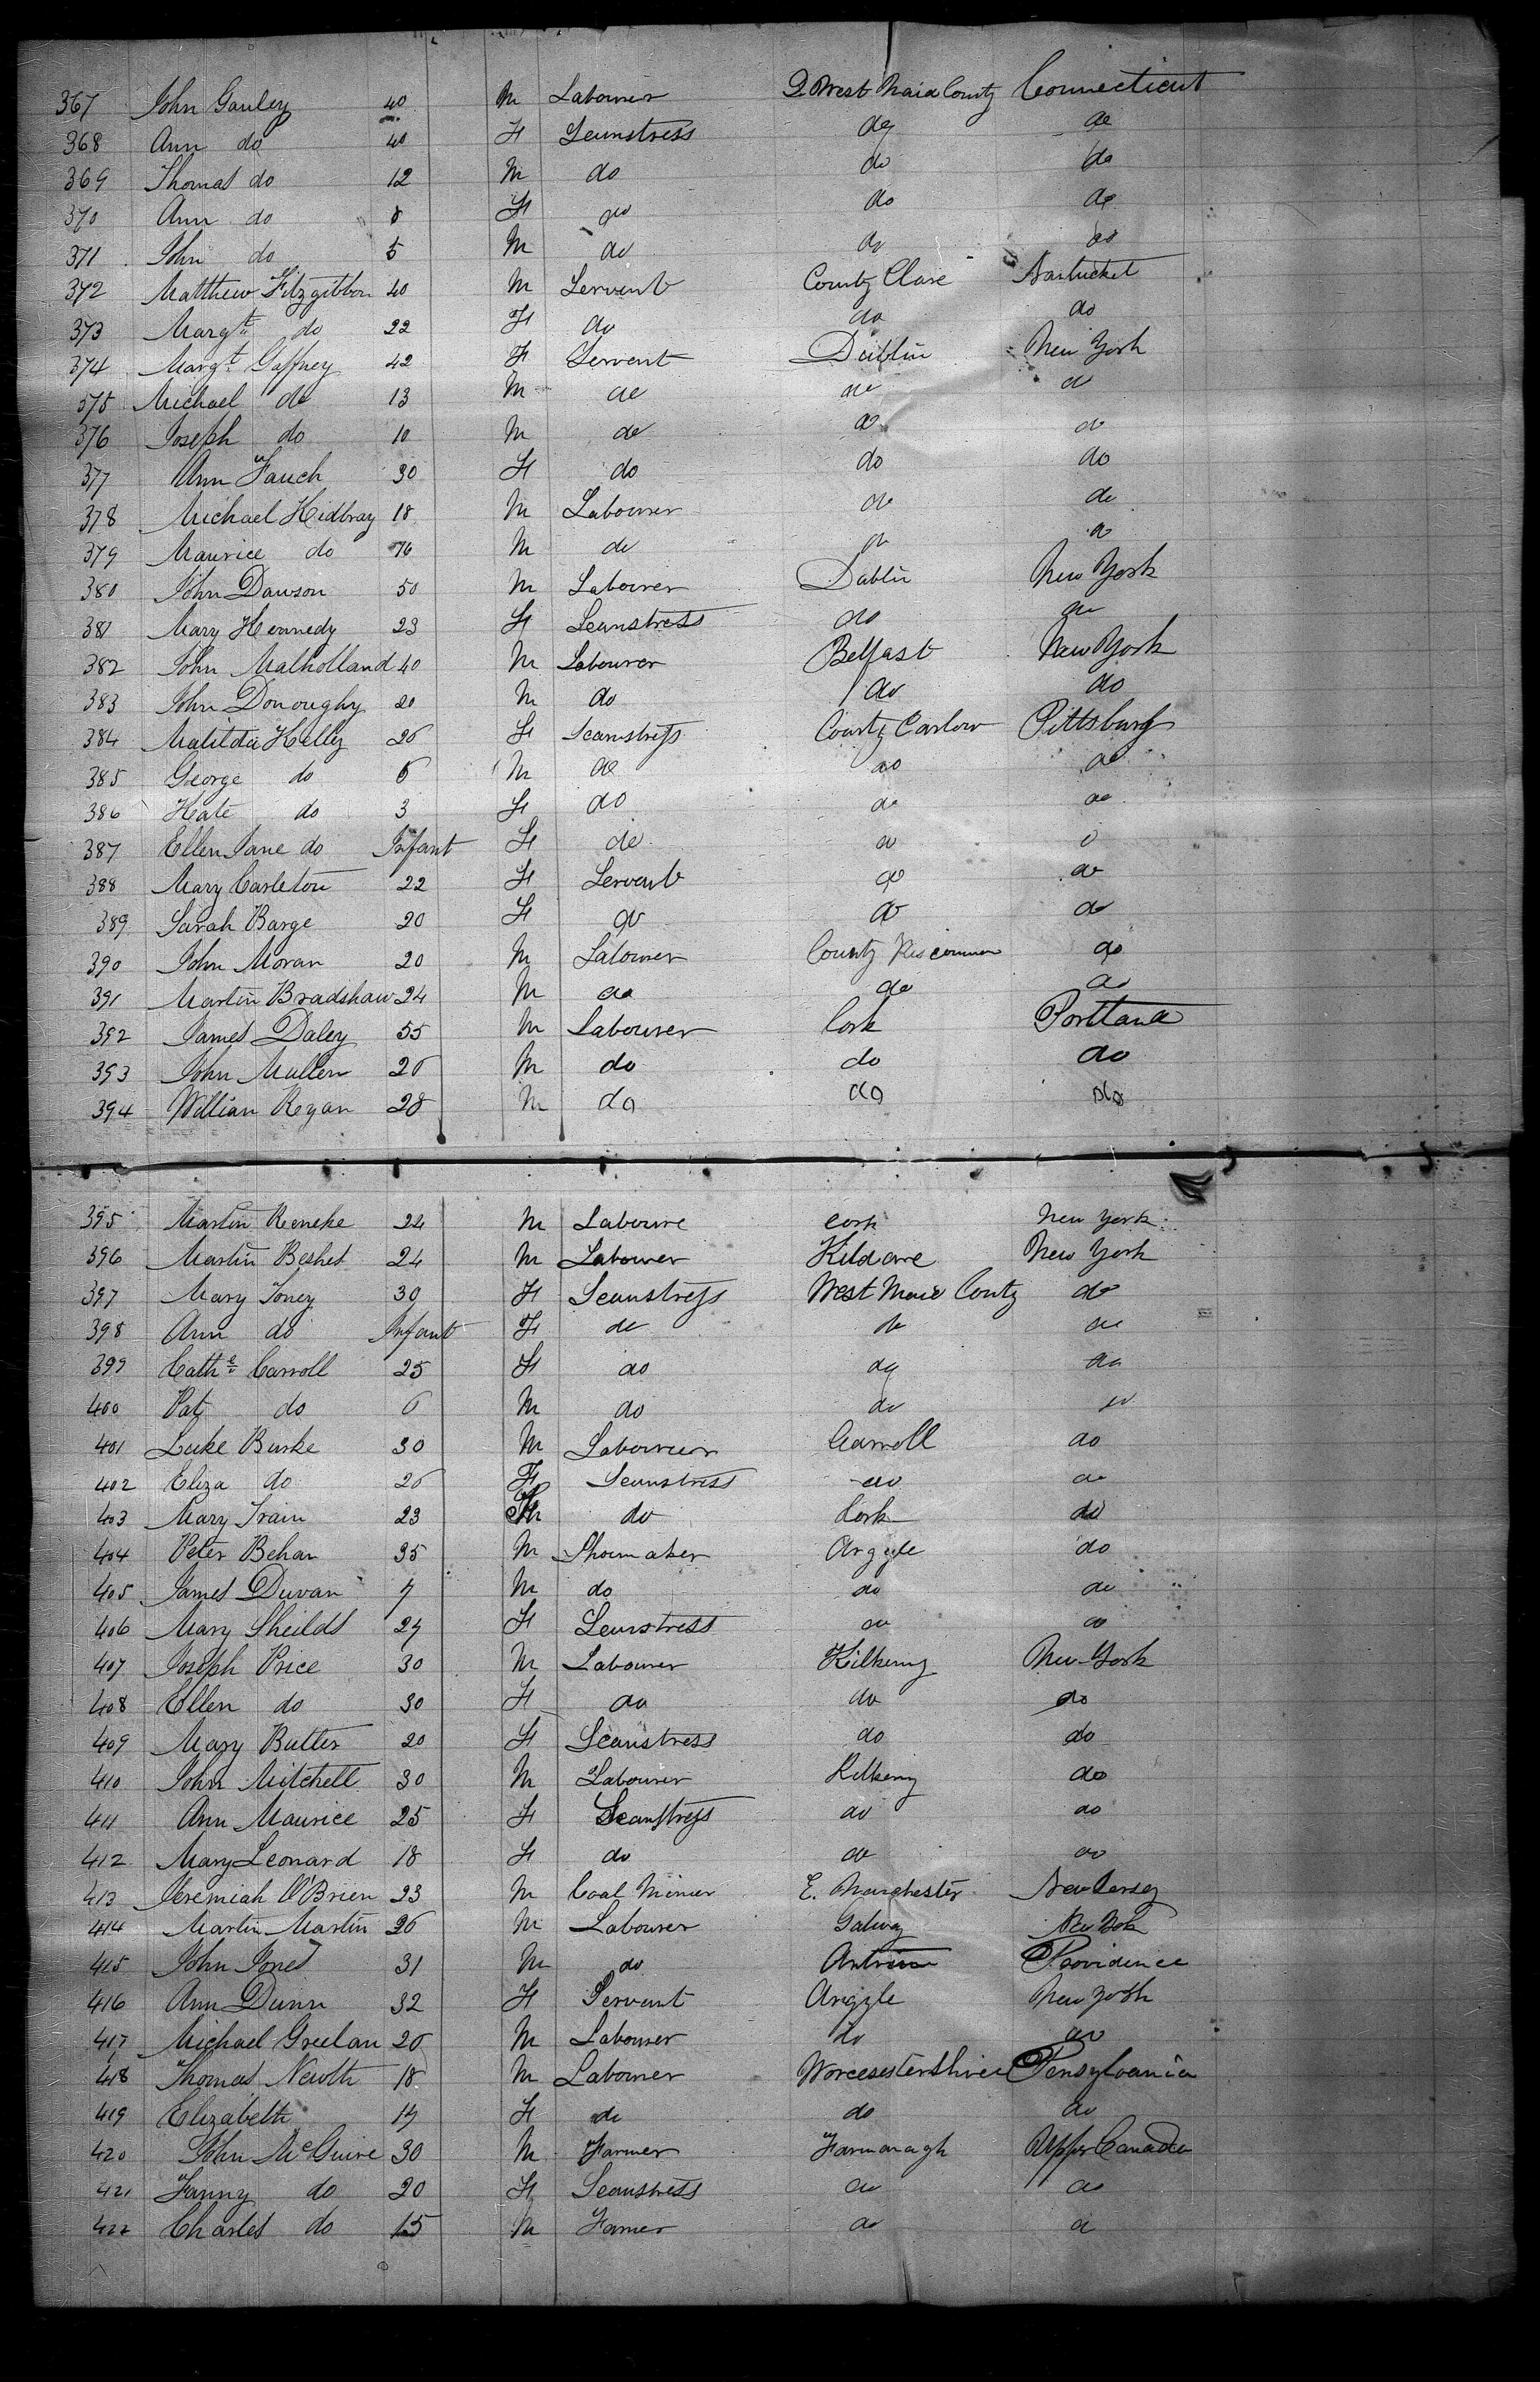 367 John Gauley 40 M Labourer Q West Maid County Connecticut
368 Ann do 40 F Seamstress do do
369 Thomas do 12 M do do do
370 Ann do 8 F do do do
371 John do 5 M do do do
372 Matthew Fitzgibbon 40 M Servent County Clare Nantucket
373 Margt do 22 F do do do
374 Margt Gaffney 42 F Servent Dublin New York
375 Michael do 13 M do do do
376 Joseph do 10 M do do do
377 Ann Fauch 30 F do do do
378 Michael Kidbray 18 M Labourer do do
379 Maurice do 16 M do do do
380 John Dawson 50 M Labourer Dublin New York
381 Mary Kennedy 23 F Seamstress do do
382 John Malholland 40 M Labourer Belfast New York
383 John Donoughy 20 M do do do
384 Matilda Kelley 26 F Seamstress County Carlow Pittsburg
385 George do 6 M do do do
386 Kate do 3 F do do do
387 Ellen Jane do Infant F do do do
388 Mary Carleton 22 F Servent do do
389 Sarah Barge 20 F do do do
390 John Moran 20 M Labourer County Roscommon do
391 Martin Bradshaw 24 M do do do
392 James Daley 55 M Labourer Cork Portland
393 John Mullen 26 M do do do
394 Willian Regan 28 M do do do
395 Martin Reneke 24 M Laboure Cork New York
396 Martin Beshet 24 M Labourer Kildare New York
397 Mary Toney 30 F Seamstress West Maid County do
398 Ann do Infant F do do do
399 Cathe Carroll 25 F do do do
400 Pat do 6 M do do do
401 Luke Burke 30 M Labourer Carroll do
402 Eliza do 26 F Seamstress do do
403 Mary Train 23 F do Cork do
404 Peter Behan 35 M Shoemaker Argyle do
405 James Duvan 7 M do do do
406 Mary Sheilds 27 F Seamstress do do
407 Joseph Price 30 M Labourer Kilkenny New York
408 Ellen do 30 F do do do
409 Mary Butler 20 F Seamstress do do
410 John Mitchell 30 M Labourer Kilkeny do
411 Ann Maurice 25 F Seamstress do do
412 Mary Leonard 18 F do do do
413 Jeremiah O'Brien 23 M Coal Miner E. Manchester New Jersey
414 Martin Martin 26 M Labourer Galway New York
415 John Jones 31 M do Antrim Providence
416 Ann Dunn 32 F Servant Argyle New York
417 Michael Greelan 26 M Labourer do do
418 Thomas Newth 18 M Labourer Worcesestershire Pensylvania
419 Elizabeth 17 F do do do
420 John McGuire 30 M Farmer Farmanagh Upper Canada
421 Fanny do 20 F Seamstress do do
422 Charles do 15 M Famer do do